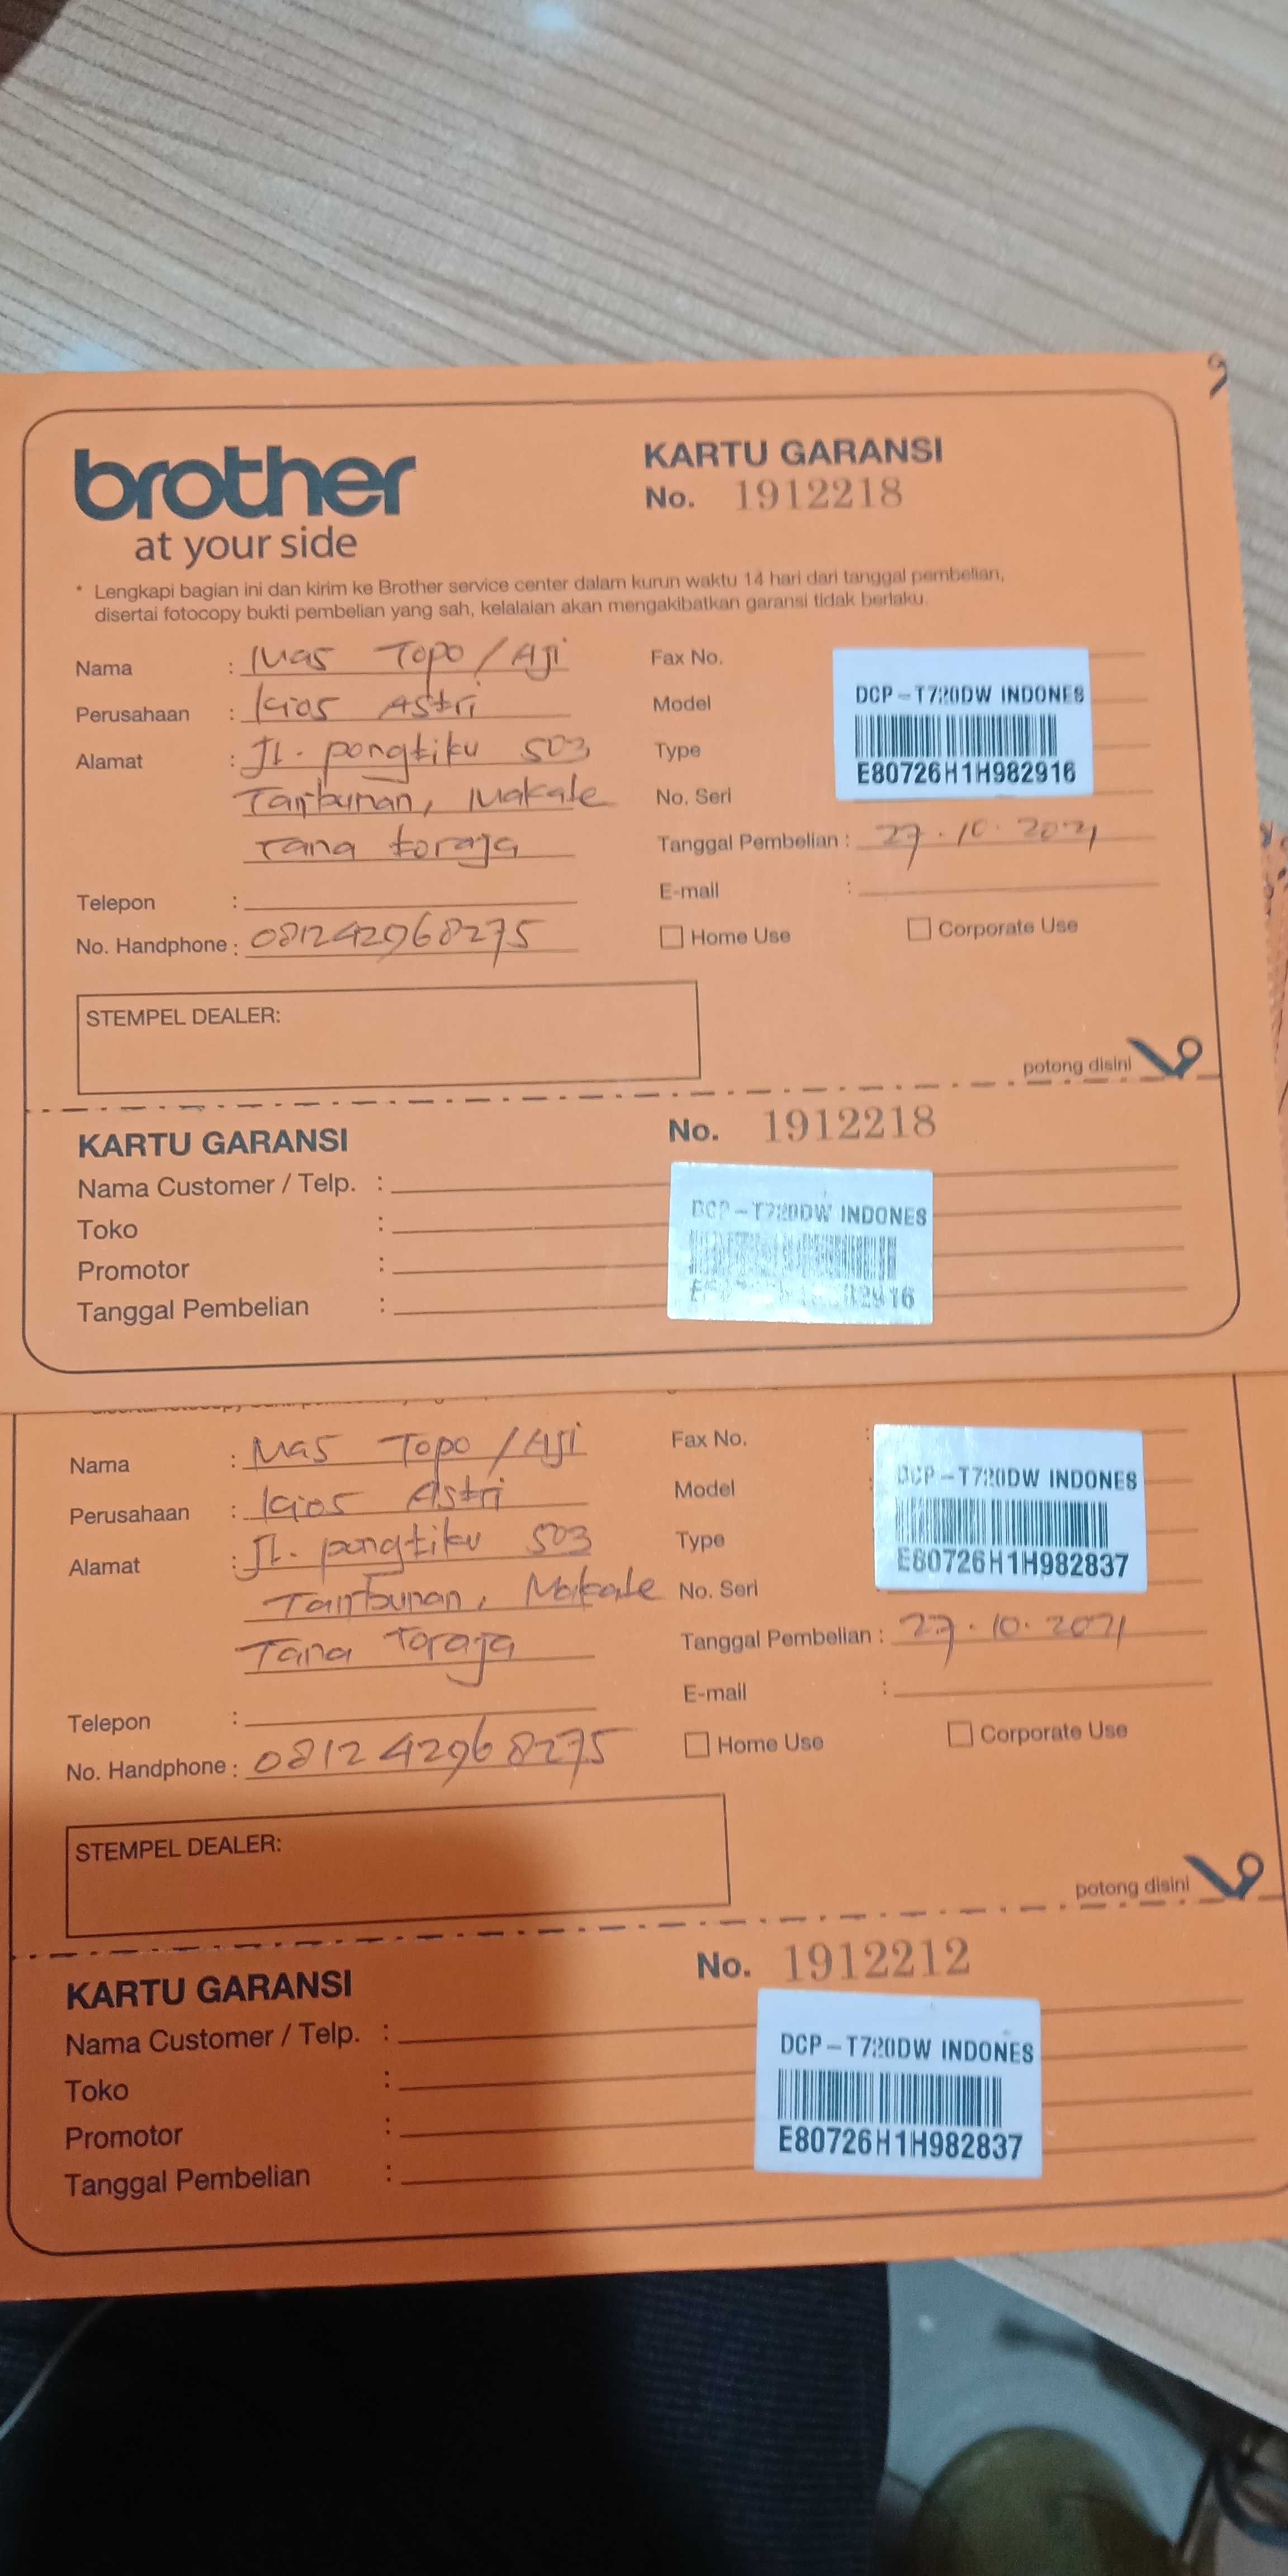 brother
at your side
KARTU GARANSI
No. 1912218
* Lengkapi bagian ini dan kirim ke Brother service center dalam kurun waktu 14 hari dari tanggal pembelian,
disertai fotocopy bukti pembelian yang sah, kelalaian akan mengakibatkan garansi tidak berlaku.
Nama : Mas Topo / Aji
Perusahaan : Kios Astri
Alamat : Jl. pongtiku 503
Tambunan, Makale
Tana toraja
Telepon :
No. Handphone : 081242968275
Fax No.
Model
Type
No. Seri
DCP-T720DW INDONES
E80726H1H982916
Tanggal Pembelian : 27.10.2021
E-mail :
Home Use
Corporate Use
STEMPEL DEALER:
potong disini
KARTU GARANSI
No. 1912218
Nama Customer / Telp. :
Toko :
Promotor :
Tanggal Pembelian :
DCP-T720DW INDONES
Nama : Mas Topo / Aji
Perusahaan : Kios Astri
Alamat : Jl. pongtiku 503
Tambunan, Makale
Tana Toraja
Telepon :
No. Handphone : 081242968275
Fax No. :
Model
Type
No. Seri
DCP-T720DW INDONES
E80726H1H982837
Tanggal Pembelian : 27.10.2021
E-mail :
Home Use
Corporate Use
STEMPEL DEALER:
potong disini
KARTU GARANSI
No. 1912212
Nama Customer / Telp. :
Toko :
Promotor :
Tanggal Pembelian :
DCP-T720DW INDONES
E80726H1H982837